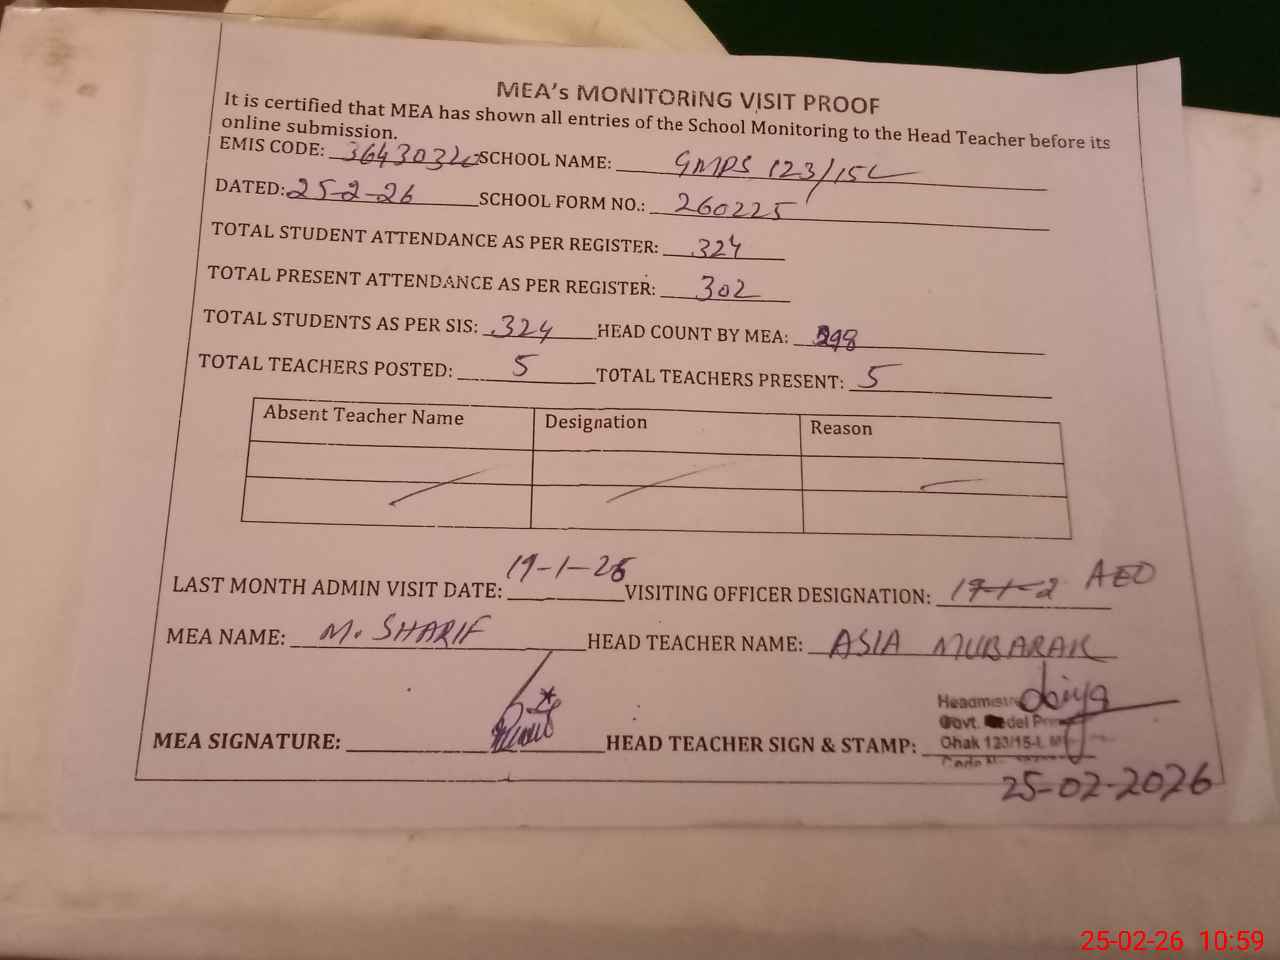 MEA's MONITORING VISIT PROOF
It is certified that MEA has shown all entries of the School Monitoring to the Head Teacher before its
online submission.
EMIS CODE: SCHOOL NAME: GMPS 123/15L
DATED: 25-2-26 SCHOOL FORM NO.: 260225
TOTAL STUDENT ATTENDANCE AS PER REGISTER: 324
TOTAL PRESENT ATTENDANCE AS PER REGISTER: 302
TOTAL STUDENTS AS PER SIS: 324 HEAD COUNT BY MEA: 298
TOTAL TEACHERS POSTED: 5 TOTAL TEACHERS PRESENT: 5
Absent Teacher Name Designation Reason
LAST MONTH ADMIN VISIT DATE: 19-1-26 VISITING OFFICER DESIGNATION: AEO
MEA NAME: M. SHARIF HEAD TEACHER NAME: ASIA MUBARAK
MEA SIGNATURE: HEAD TEACHER SIGN & STAMP:
Govt.
Chak 123/15-L
25-02-2026
25-02-26 10:59